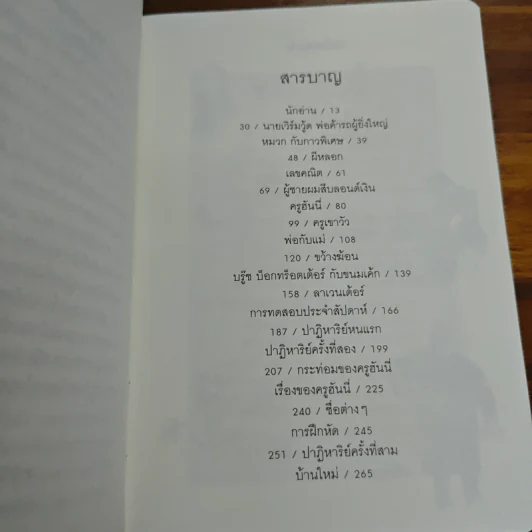 สารบาญ
นักอ่าน / 13
30 / นายเวิร์มวู้ด พ่อค้ารถผู้ยิ่งใหญ่
หมวก กับกาวพิเศษ / 39
48 / ผีหลอก
เลขคณิต / 61
69 / ผู้ชายผมสีบลอนด์เงิน
ครูฮันนี่ / 80
99 / ครูเขาวัว
พ่อกับแม่ / 108
120 / ขว้างฆ้อน
บรู๊ซ บ็อกทร็อตเต้อร์ กับขนมเค้ก / 139
158 / ลาเวนเด้อร์
การทดสอบประจำสัปดาห์ / 166
187 / ปาฏิหาริย์หนแรก
ปาฏิหาริย์ครั้งที่สอง / 199
207 / กระท่อมของครูฮันนี่
เรื่องของครูฮันนี่ / 225
240 / ชื่อต่างๆ
การฝึกหัด / 245
251 / ปาฏิหาริย์ครั้งที่สาม
บ้านใหม่ / 265